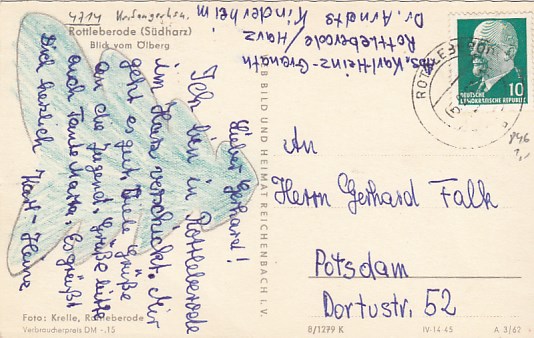 4714
Rottleberode (Südharz)
Blick vom Ölberg
Abs. Karl-Heinz-Grenath
Rottleberode/Harz
Dr. Arndts
Kinderheim
Lieber Gerhard!
Ich bin in Rottleberode
im Harz verschickt. Mir
geht es gut. Viele Grüße
an die Jugend. Grüße bitte
auch Tante Marta. Es grüßt
Dich herzlich Karl-Heinz
Foto: Krelle, Rottleberode
Verbraucherpreis DM -,15
BILD UND HEIMAT REICHENBACH I. V.
DEUTSCHE
DEMOKRATISCHE REPUBLIK
10
ROTTLEBERODE
An
Herrn Gerhard Falk
Potsdam
Dortustr. 52
8/1279 K
IV-14-45
A 3/62